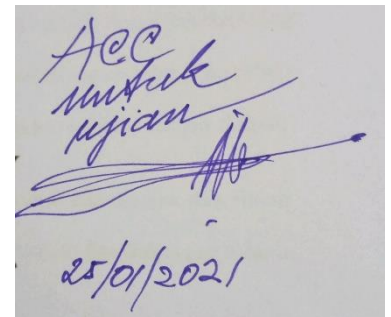 ACC
untuk
ujian
25/01/2021